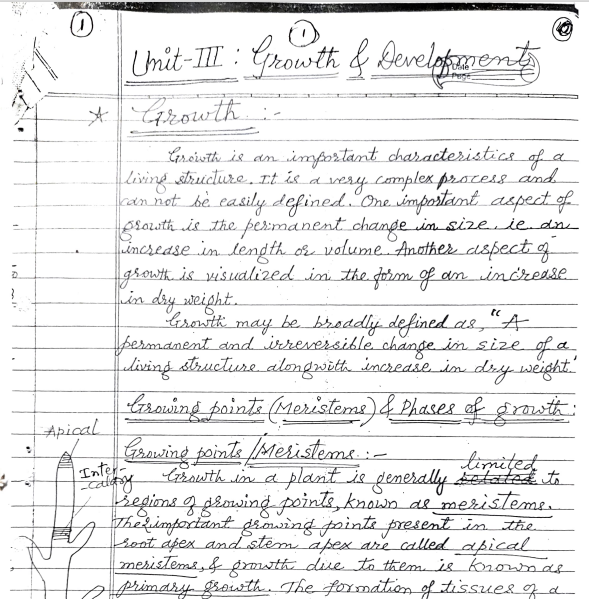 1
1
Unit-III : Growth & Development
Date
Page
Growth :-
Growth is an important characteristics of a
living structure. It is a very complex process and
can not be easily defined. One important aspect of
growth is the permanent change in size. ie. an
increase in length or volume. Another aspect of
growth is visualized in the form of an increase
in dry weight.
Growth may be broadly defined as, "A
permanent and irreversible change in size of a
living structure alongwith increase in dry weight."
Growing points (Meristems) & Phases of growth:
Apical
Growing points/Meristems :-
limited
Inter-
calary
Growth in a plant is generally related to
regions of growing points, known as meristems.
The important growing points present in the
root apex and stem apex are called apical
meristems, & growth due to them is known as
primary growth. The formation of tissues of a